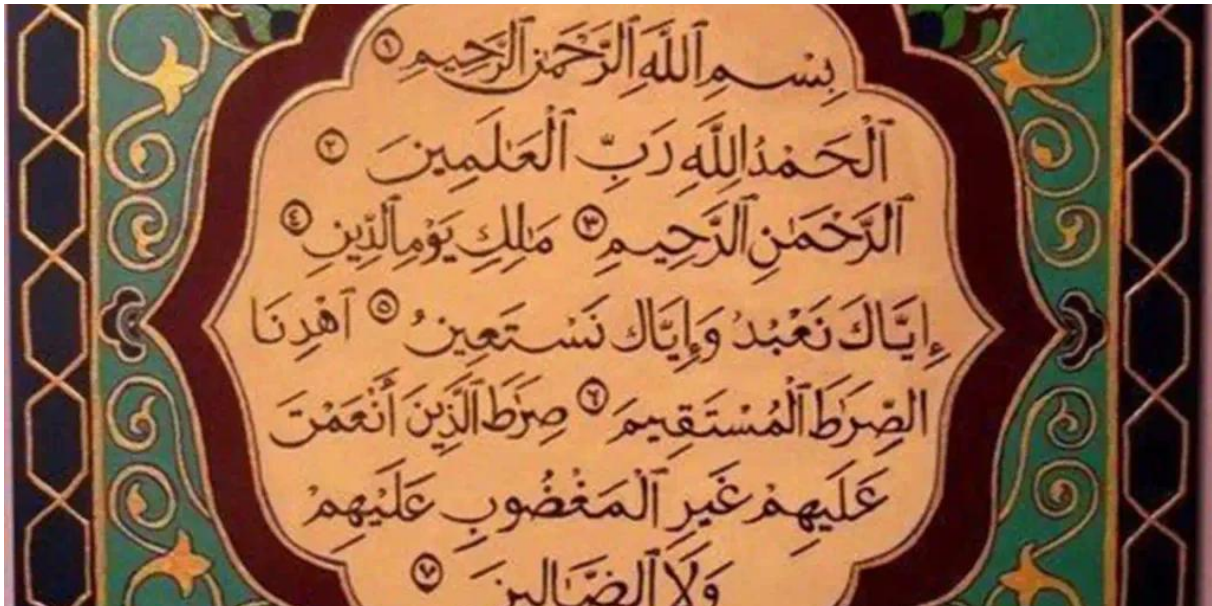 بِسْمِ ٱللَّهِ ٱلرَّحْمَٰنِ ٱلرَّحِيمِ ١
ٱلْحَمْدُ لِلَّهِ رَبِّ ٱلْعَٰلَمِينَ ٢
ٱلرَّحْمَٰنِ ٱلرَّحِيمِ ٣ مَٰلِكِ يَوْمِ ٱلدِّينِ ٤
إِيَّاكَ نَعْبُدُ وَإِيَّاكَ نَسْتَعِينُ ٥ ٱهْدِنَا
ٱلصِّرَٰطَ ٱلْمُسْتَقِيمَ ٦ صِرَٰطَ ٱلَّذِينَ أَنْعَمْتَ
عَلَيْهِمْ غَيْرِ ٱلْمَغْضُوبِ عَلَيْهِمْ
وَلَا ٱلضَّالِّينَ ٧